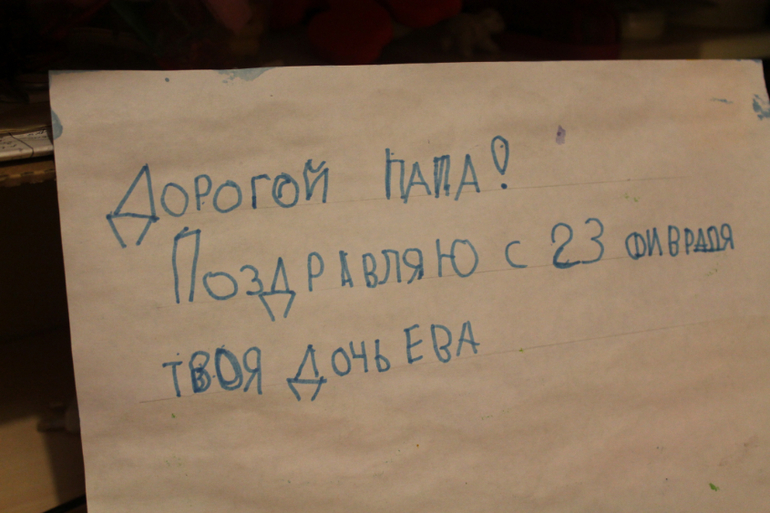 Дорогой папа!
Поздравляю с 23 фивраля
твоя дочь Ева